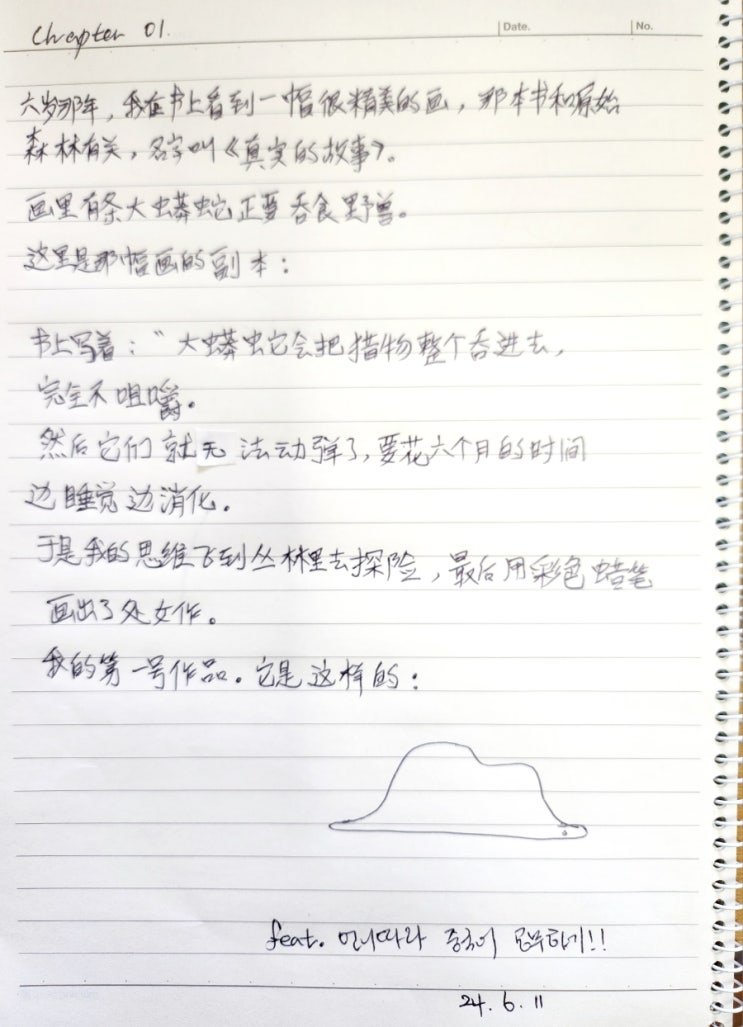 Chapter 01.
Date.
No.
六岁那年，我在书上看到一幅很精美的画，那本书和原始
森林有关，名字叫《真实的故事》。
画里有条大蟒蛇正要吞食野兽。
这里是那幅画的副本：
书上写着：“大蟒蛇会把猎物整个吞进去，
完全不咀嚼。
然后它们就无法动弹了，要花六个月的时间
边睡觉边消化。
于是我的思维飞到丛林里去探险，最后用彩色蜡笔
画出了处女作。
我的第一号作品。它是这样的：
feat. 언니따라 중국어 공부하기!!
24. 6. 11